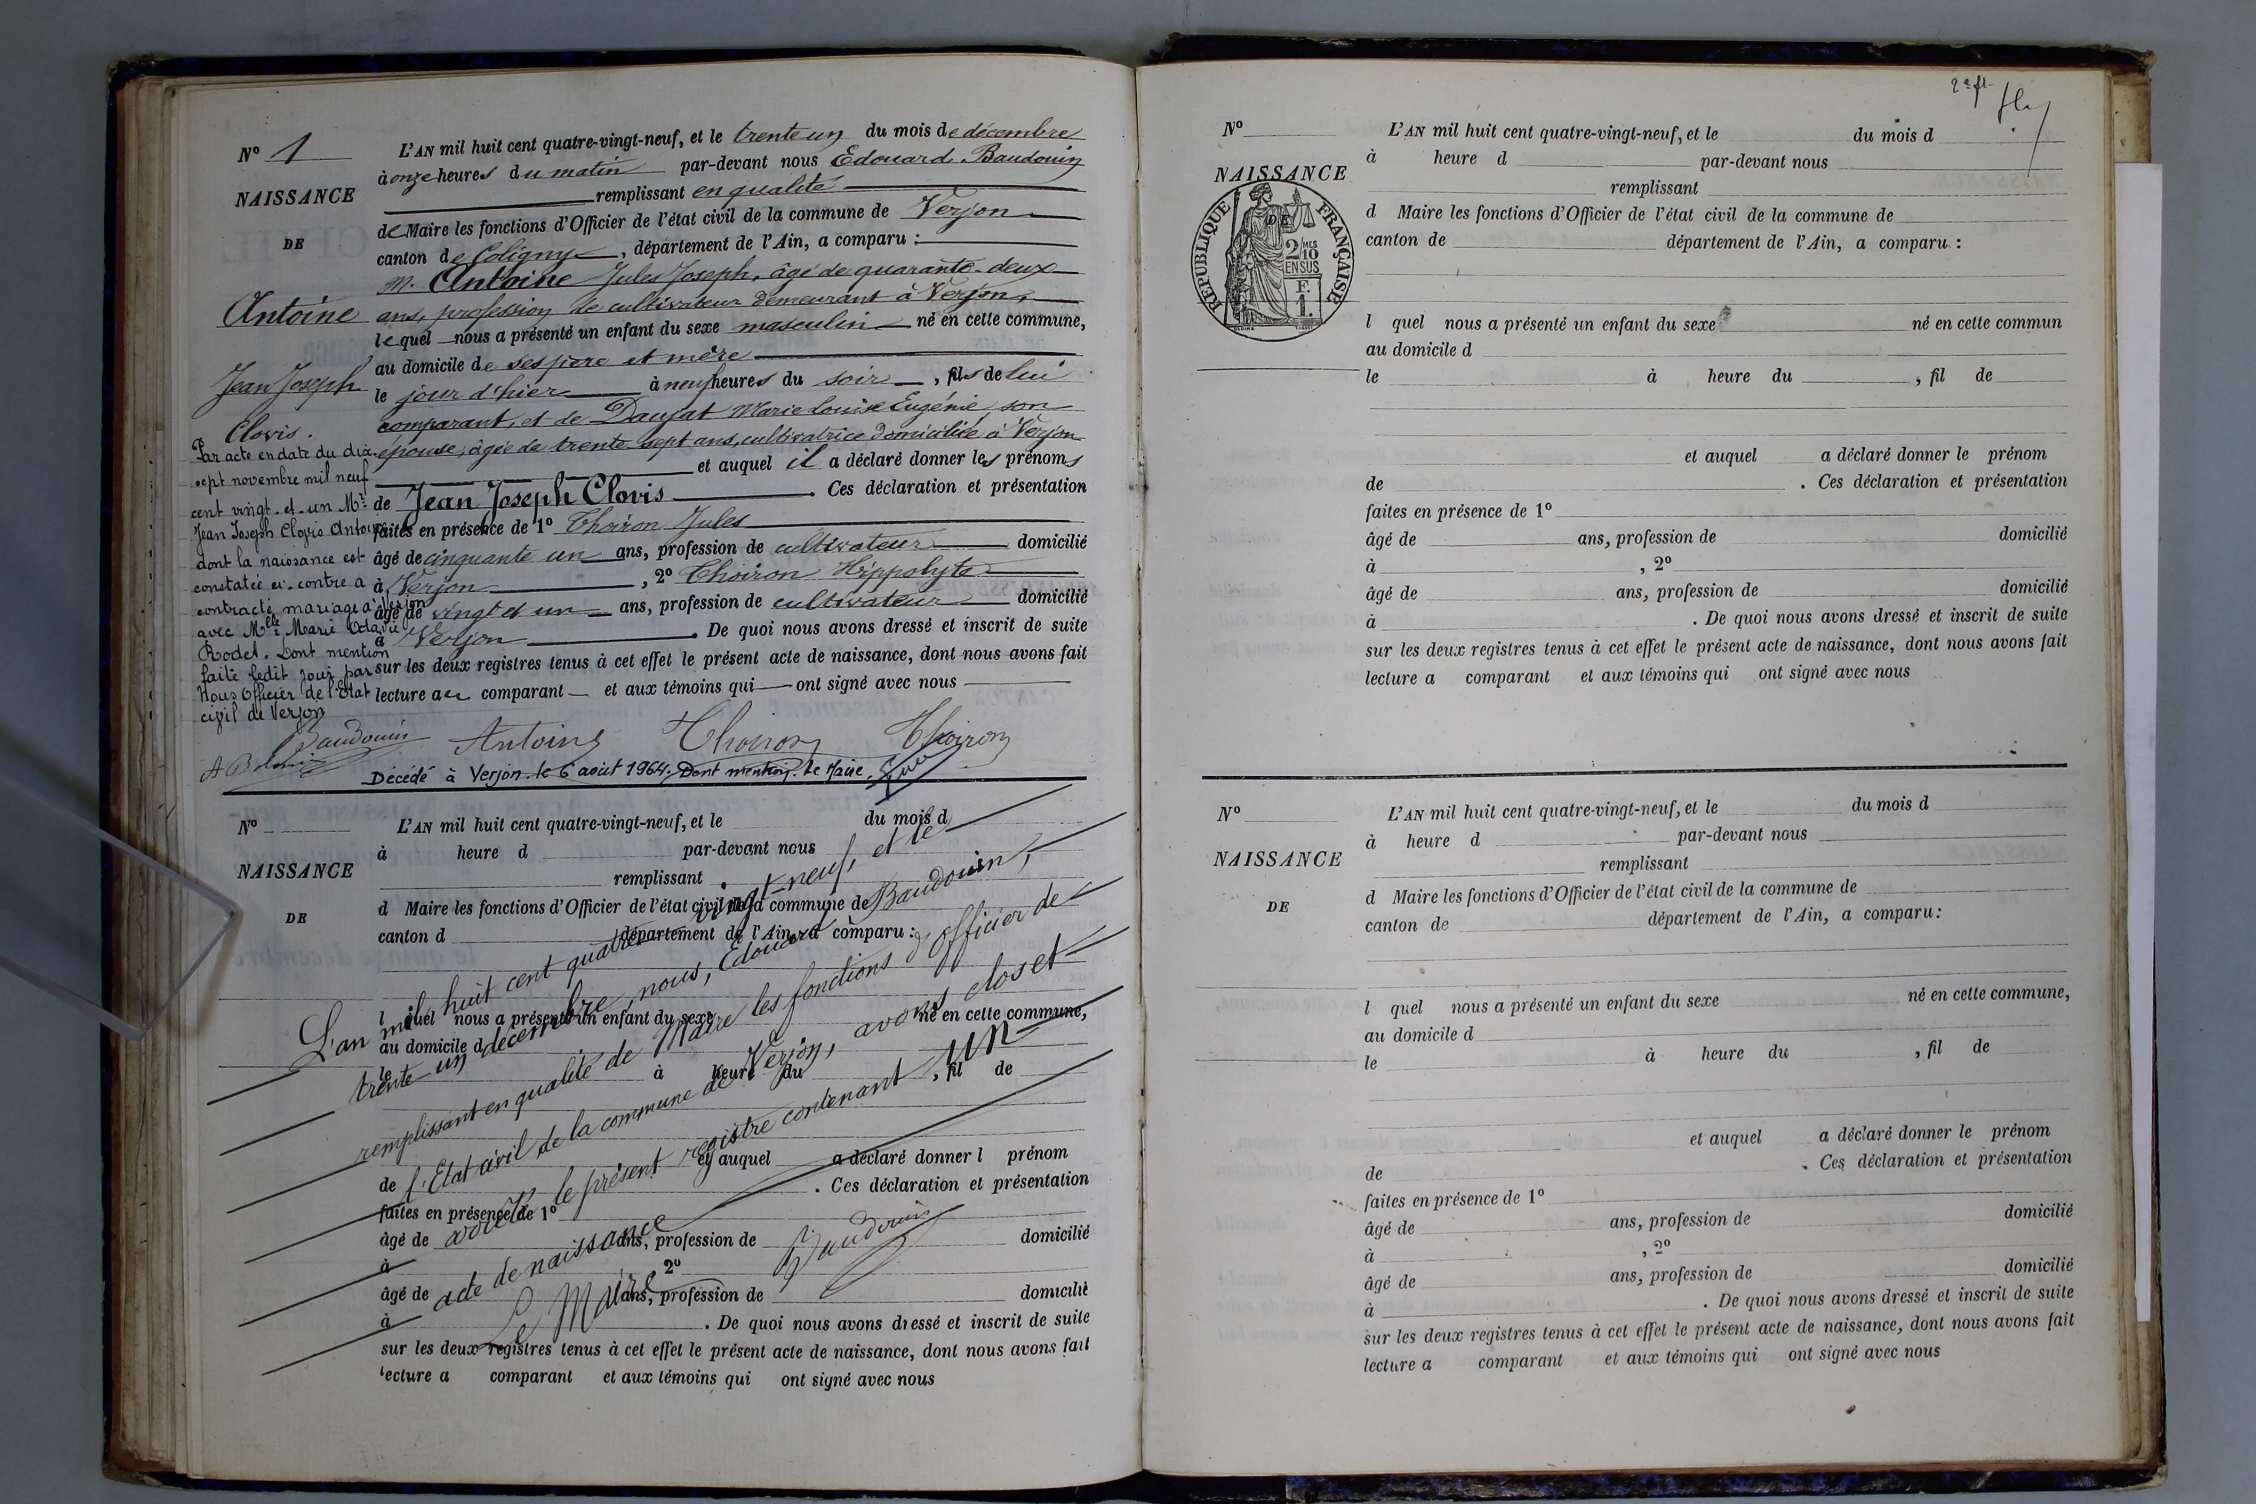 N° 1
NAISSANCE
DE
Antoine
Jean Joseph
Clovis.
Par acte en date du dix-
sept novembre mil neuf
cent vingt-et-un Mr
Jean Joseph Clovis Antoine
dont la naissance est
constatée ci-contre a
contracté mariage à Verjon
avec Melle Marie Octavie
Rodet. Dont mention
faite ledit jour par
Nous Officier de l'Etat
civil de Verjon
L'AN mil huit cent quatre-vingt-neuf, et le trente un du mois de décembre
à onze heures du matin par-devant nous Edouard Baudouin
remplissant en qualité
de Maire les fonctions d'Officier de l'état civil de la commune de Verjon
canton de Coligny, département de l'Ain, a comparu :
M. Antoine Jules Joseph, âgé de quarante-deux
ans, profession de cultivateur demeurant à Verjon,
lequel nous a présenté un enfant du sexe masculin né en cette commune,
au domicile de ses père et mère
le jour d'hier à neuf heures du soir, fils de lui
comparant, et de Daujat Marie Louise Eugénie son
épouse, âgée de trente sept ans, cultivatrice domiciliée à Verjon
et auquel il a déclaré donner les prénoms
de Jean Joseph Clovis. Ces déclaration et présentation
faites en présence de 1° Thoiron Jules
âgé de cinquante un ans, profession de cultivateur domicilié
à Verjon, 2° Thoiron Hippolyte
âgé de vingt et un ans, profession de cultivateur domicilié
à Verjon. De quoi nous avons dressé et inscrit de suite
sur les deux registres tenus à cet effet le présent acte de naissance, dont nous avons fait
lecture au comparant et aux témoins qui ont signé avec nous
Baudouin Antoine Thoiron Thoiron
Décédé à Verjon le 6 août 1964. Dont mention. Le Maire,
N°
NAISSANCE
DE
L'AN mil huit cent quatre-vingt-neuf, et le du mois d
à heure d par-devant nous
remplissant
d Maire les fonctions d'Officier de l'état civil de la commune de
canton d département de l'Ain, a comparu :
l quel nous a présenté un enfant du sexe né en cette commune,
au domicile d
le à heure du , fil de
et auquel a déclaré donner l prénom
de . Ces déclaration et présentation
faites en présence de 1°
âgé de ans, profession de domicilié
à 2°
âgé de ans, profession de domicilié
à . De quoi nous avons dressé et inscrit de suite
sur les deux registres tenus à cet effet le présent acte de naissance, dont nous avons fait
lecture a comparant et aux témoins qui ont signé avec nous
L'an mil huit cent quatre vingt-neuf, et le
trente un décembre, nous, Edouard Baudouin,
remplissant en qualité de Maire les fonctions d'officier de
l'Etat civil de la commune de Verjon, avons clos et
arrêté le présent registre contenant un
acte de naissance
Le Maire
Baudouin
2e ft
N°
NAISSANCE
DE
RÉPUBLIQUE FRANÇAISE
2/10 MES
EN SUS
F.
1.
L'AN mil huit cent quatre-vingt-neuf, et le du mois d
à heure d par-devant nous
remplissant
d Maire les fonctions d'Officier de l'état civil de la commune de
canton de département de l'Ain, a comparu :
l quel nous a présenté un enfant du sexe né en cette commun
au domicile d
le à heure du , fil de
et auquel a déclaré donner le prénom
de . Ces déclaration et présentation
faites en présence de 1°
âgé de ans, profession de domicilié
à , 2°
âgé de ans, profession de domicilié
à . De quoi nous avons dressé et inscrit de suite
sur les deux registres tenus à cet effet le présent acte de naissance, dont nous avons fait
lecture a comparant et aux témoins qui ont signé avec nous
N°
NAISSANCE
DE
L'AN mil huit cent quatre-vingt-neuf, et le du mois d
à heure d par-devant nous
remplissant
d Maire les fonctions d'Officier de l'état civil de la commune de
canton de département de l'Ain, a comparu :
l quel nous a présenté un enfant du sexe né en cette commune,
au domicile d
le à heure du , fil de
et auquel a déclaré donner le prénom
de . Ces déclaration et présentation
faites en présence de 1°
âgé de ans, profession de domicilié
à , 2°
âgé de ans, profession de domicilié
à . De quoi nous avons dressé et inscrit de suite
sur les deux registres tenus à cet effet le présent acte de naissance, dont nous avons fait
lecture a comparant et aux témoins qui ont signé avec nous